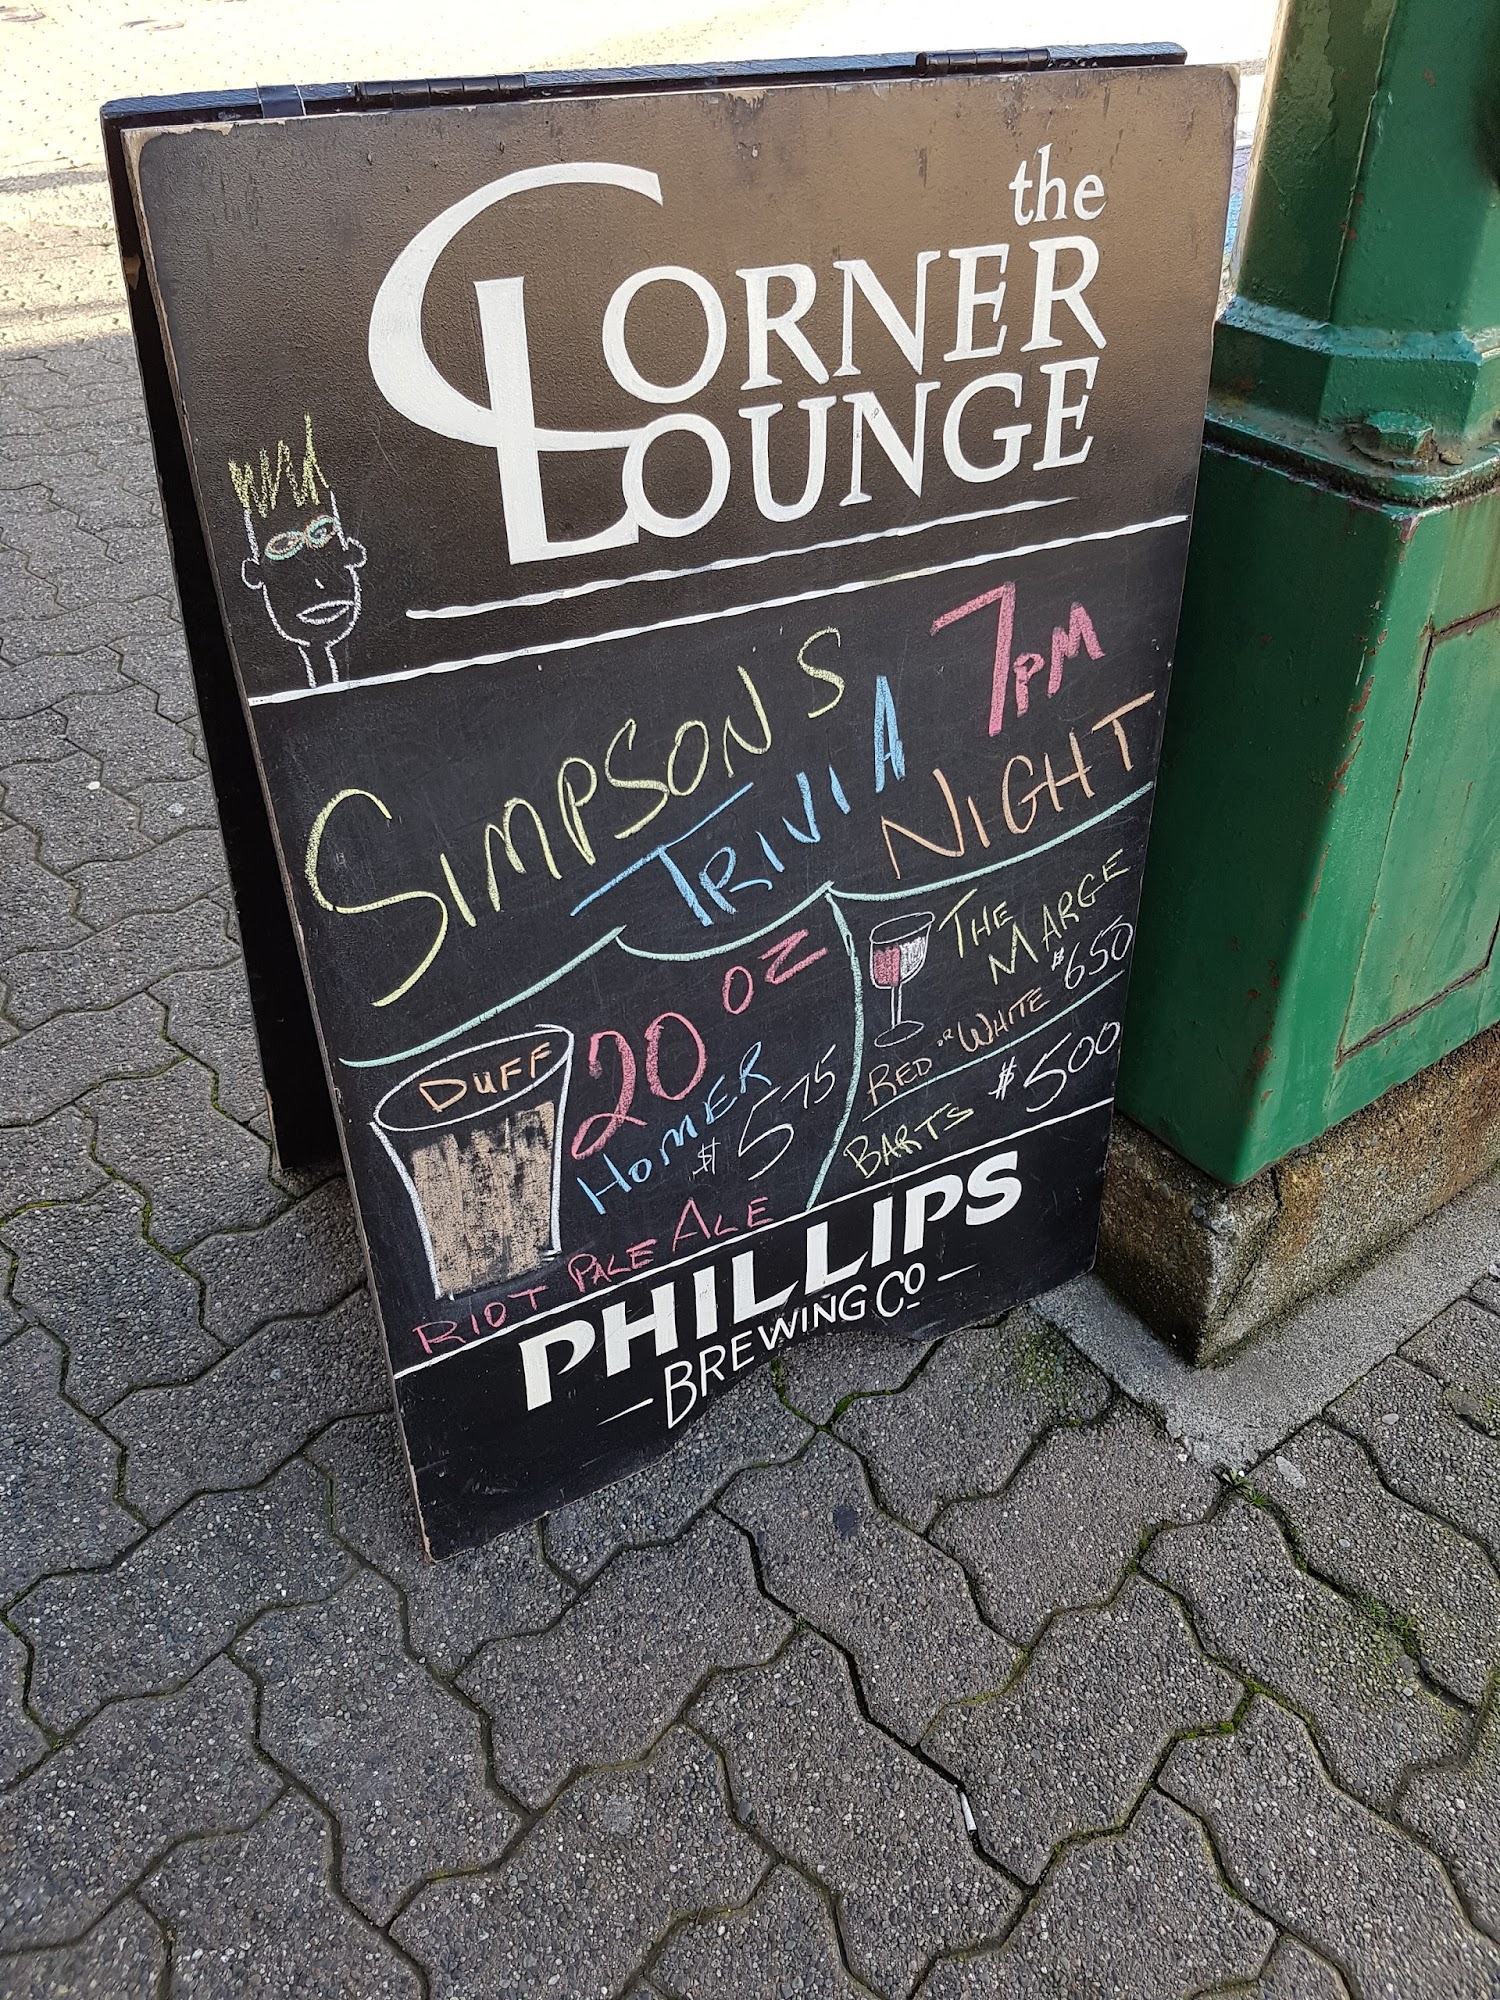 the
CORNER
LOUNGE
SIMPSONS 7PM
TRIVIA NIGHT
DUFF
20 oz
HOMER
$575
RIOT PALE ALE
THE
MARGE
RED OR WHITE $650
BARTS $500
PHILLIPS
BREWING Co